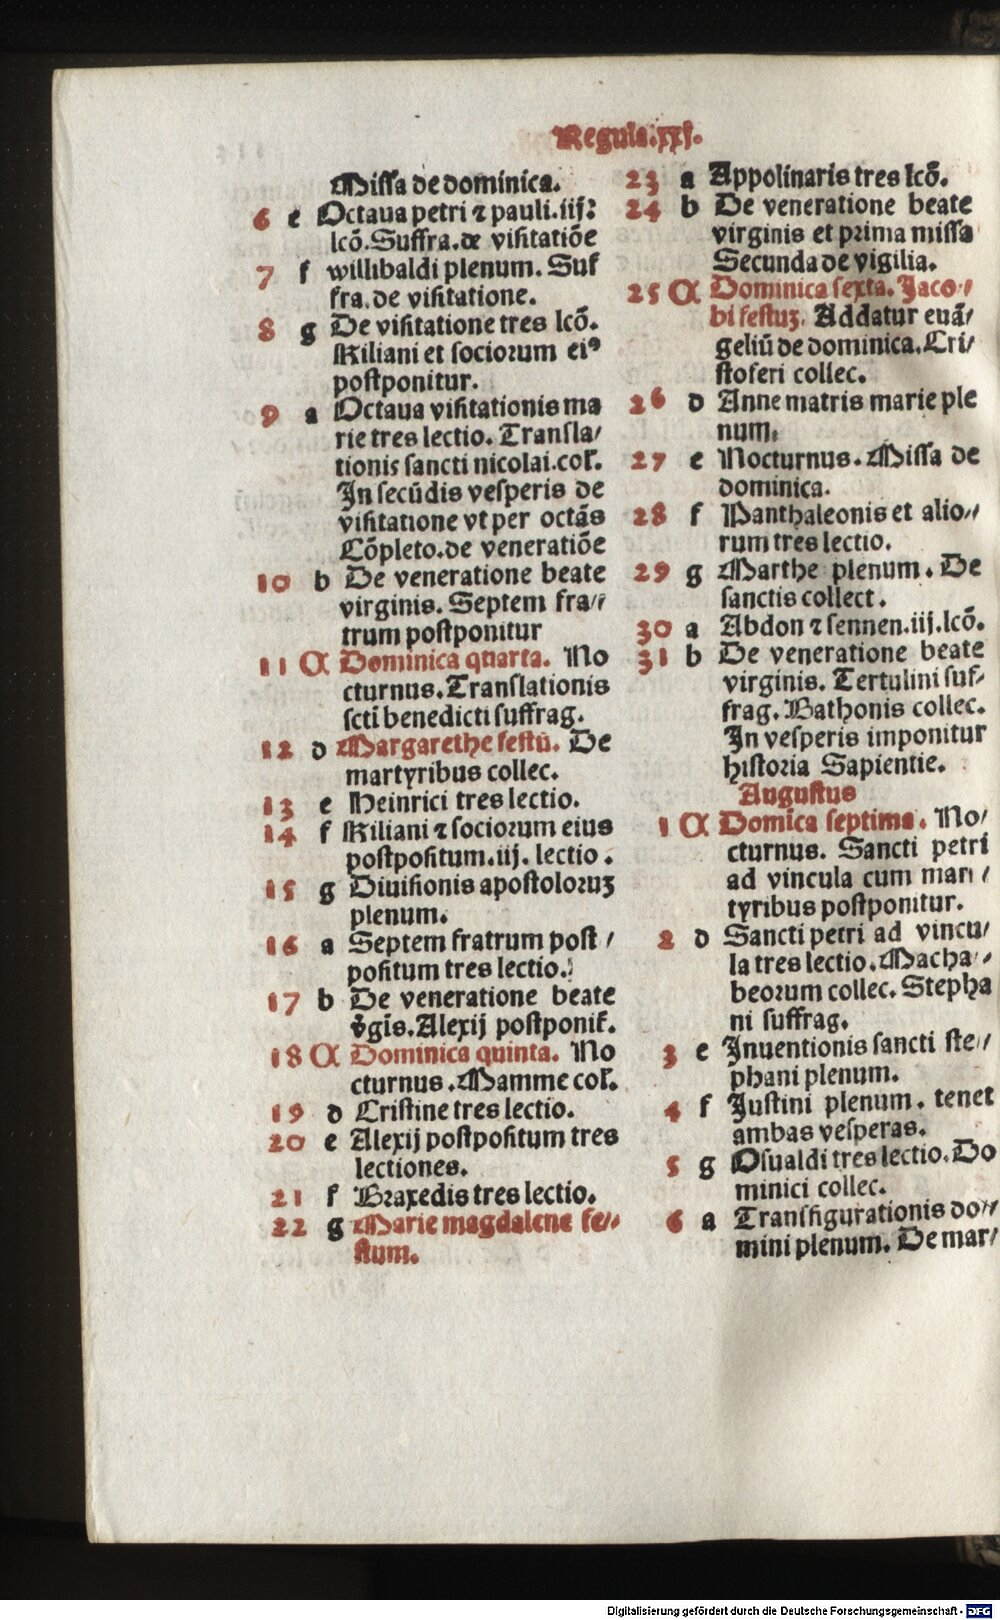 Regula.xxj.
Missa de dominica.
6 e Octaua petri ⁊ pauli.iij:
lcõ.Suffra.de visitatiõe
7 f willibaldi plenum. Suf
fra.de visitatione.
8 g De visitatione tres lcõ.
Kiliani et sociorum eiꝰ
postponitur.
9 a Octaua visitationis ma
rie tres lectio. Transla/
tionis sancti nicolai.col̃.
In secũdis vesperis de
visitatione vt per octãs
Cõpleto.de veneratiõe
10 b De veneratione beate
virginis. Septem fra//
trum postponitur
11 A Dominica quarta. No
cturnus.Translationis
scti benedicti suffrag.
12 d Margarethe festũ. De
martyribus collec.
13 e Heinrici tres lectio.
14 f Kiliani ⁊ sociorum eius
postpositum.iij. lectio.
15 g Diuisionis apostoloruꝫ
plenum.
16 a Septem fratrum post /
positum tres lectio.
17 b De veneratione beate
v̄gis.Alexij postponit̃.
18 A Dominica quinta. No
cturnus.Mamme col̃.
19 d Cristine tres lectio.
20 e Alexij postpositum tres
lectiones.
21 f Braxedis tres lectio.
22 g Marie magdalene fe//
stum.
23 a Appolinaris tres lcõ.
24 b De veneratione beate
virginis et prima missa
Secunda de vigilia.
25 A Dominica sexta. Jaco//
bi festuꝫ. Addatur euã/
geliũ de dominica.Cri/
stoferi collec.
26 d Anne matris marie ple
num.
27 e Nocturnus. Missa de
dominica.
28 f Panthaleonis et alio//
rum tres lectio.
29 g Marthe plenum. De
sanctis collect.
30 a Abdon ⁊ sennen.iij.lcõ.
31 b De veneratione beate
virginis. Tertulini suf/
frag. Bathonis collec.
In vesperis imponitur
historia Sapientie.
Augustus
1 A Domĩca septima. No/
cturnus. Sancti petri
ad vincula cum mar /
tyribus postponitur.
2 d Sancti petri ad vincu/
la tres lectio.Macha//
beorum collec. Stepha
ni suffrag.
3 e Inuentionis sancti ste//
phani plenum.
4 f Justini plenum. tenet
ambas vesperas.
5 g Osualdi tres lectio. Do
minici collec.
6 a Transfigurationis do//
mini plenum. De mar/
Digitalisierung gefördert durch die Deutsche Forschungsgemeinschaft - DFG